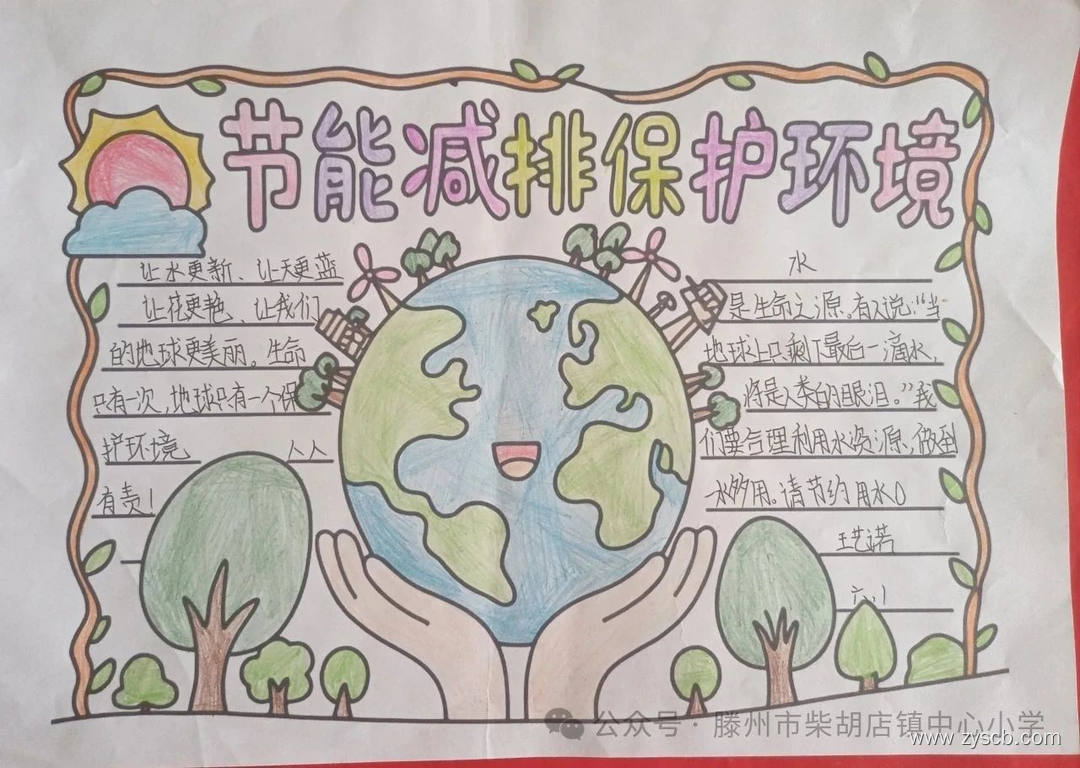 节能减排保护环境
让水更新、让天更蓝
让花更艳、让我们
的地球更美丽。生命
只有一次,地球只有一个保
护环境 人人
有责!
水
是生命之源。有人说:“当
地球上只剩下最后一滴水,
将是人类的眼泪。”我
们要合理利用水资源,做到
水够用。请节约用水。
王艺诺
六.1
公众号·滕州市柴胡店镇中心小学
www.zyscb.com